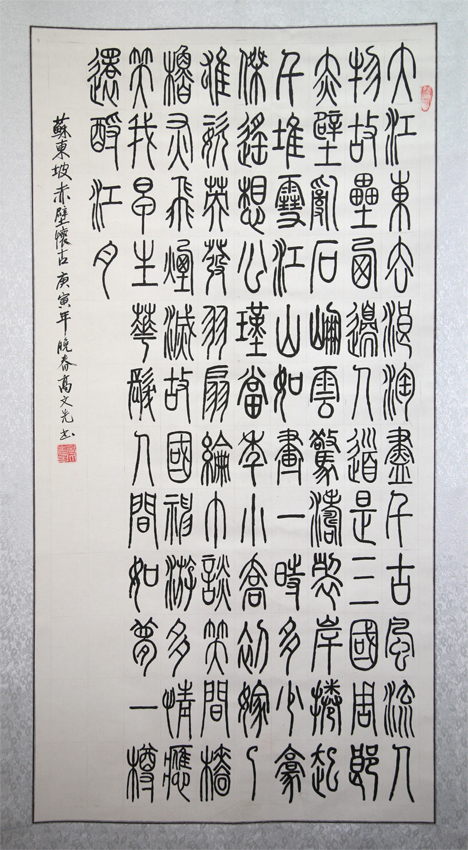 大江東去浪淘盡千古風流人
物故壘西邊人道是三國周郎
赤壁亂石崩雲驚濤裂岸捲起
千堆雪江山如畫一時多少豪
傑遙想公瑾當年小喬初嫁了
雄姿英發羽扇綸巾談笑間檣
櫓灰飛煙滅故國神游多情應
笑我早生華髮人間如夢一樽
還酹江月
蘇東坡赤壁懷古庚寅年晚春高文先书